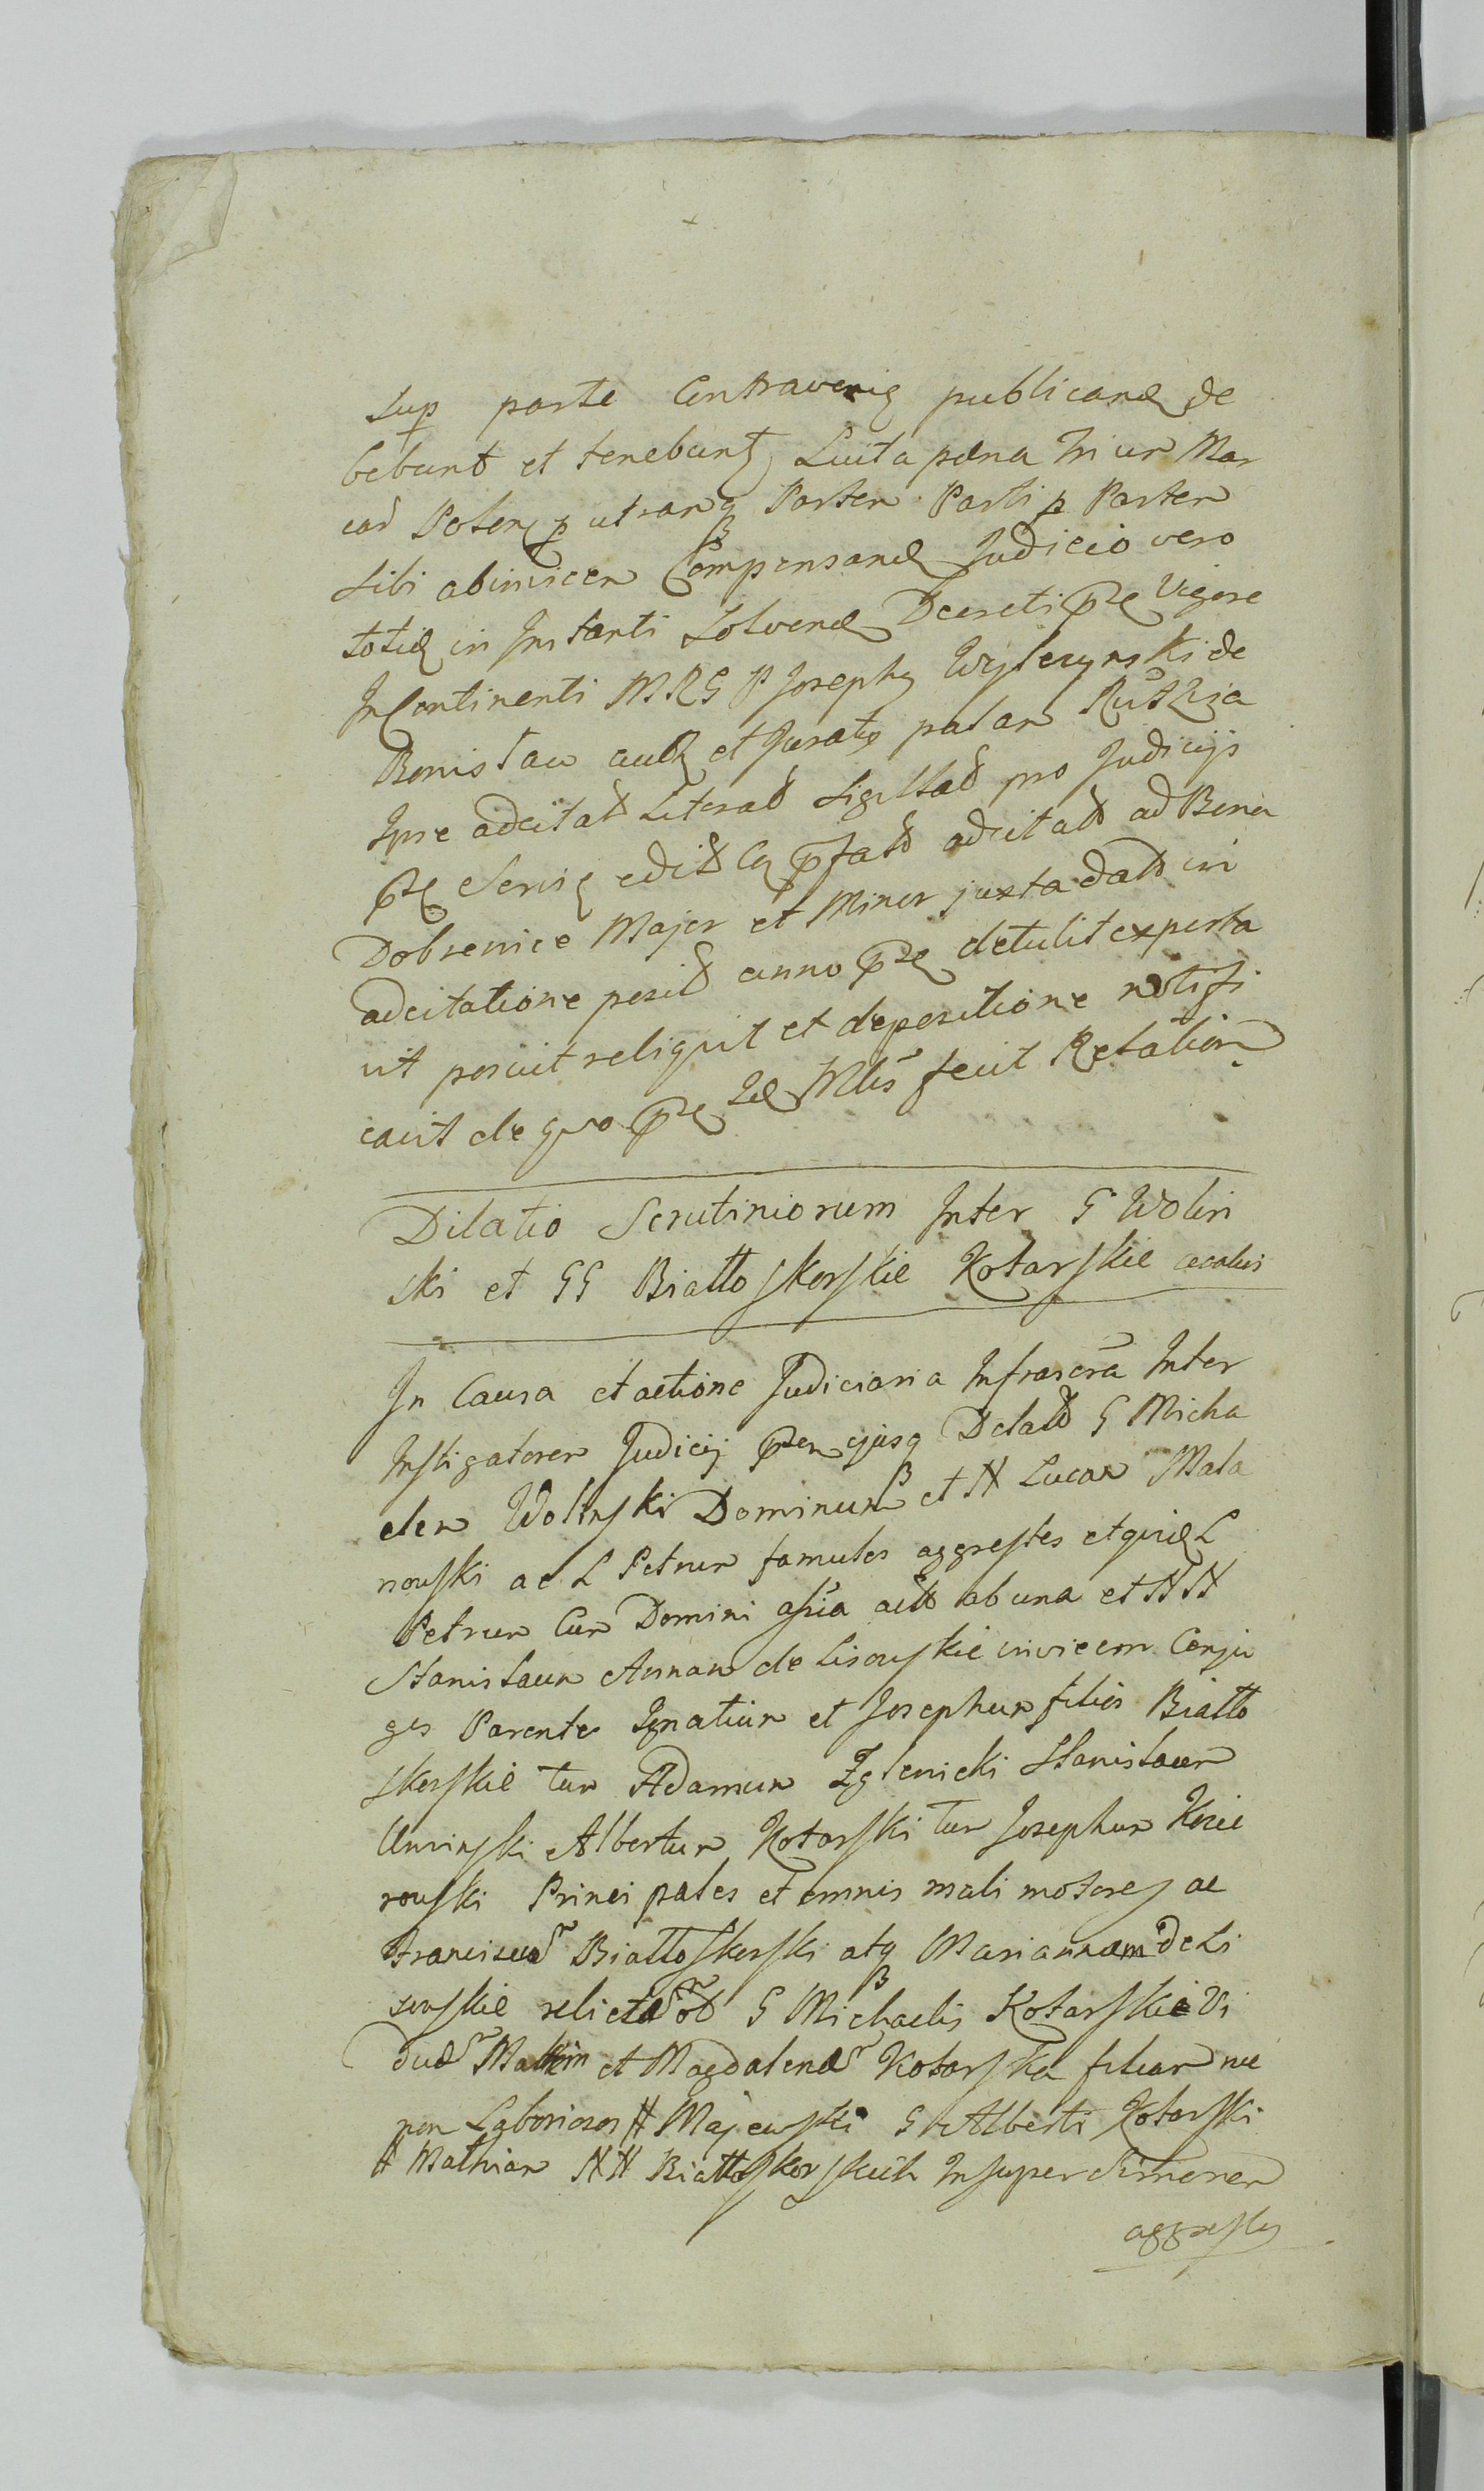 sup parte Contraveng publicand de
bebunt et tenebunt Luita pœna Trium Mar
car Polon p utramq Partem Parti p Partem
sibi abinvicem Compensand Judicio vero
totid in Instanti Solvend Decreti pꝛe Vigore
InContinenti MRG P Joseph Wylezynski de
Bonis Tau et Juratq palam
Ipse adcitat Literad sigillad pro Judicijs
pꝛe Servig edit Cq pfatt adcitatt ad Bona
Dobrenice Major et Minor juxta datt in
adcitatione posit anno pꝛe detulit exporta
vit posuit reliquit et depositione notifi
cavit de quo pꝛe Mlis fecit Relation
Dilatio Scrutiniorum Inter G Wolin
ski et GG Biattoskorskie Kotarskie
In Causa et actione Judiciaria Infrascra Inter
Instigatorem Judicij pꝛen ejusq Delatt G Micha
elem Wolinski Dominum et N Lucam Mala
nowski ac L Petrum famulos aggrestes et quid L
Petrum Cum Domini asia actt ab una et NN
Stanislaum Annam de Lisowskie invicem Conju
ges Parentes Ignatium et Josephum filios Biatto
skorskie tum Adamum Zglenicki Stanislaum
Uminski Albertum Kotarski tum Josephum Kosie
rowski Principales et omnis mali motores ac
Franciscum Biattoskorski atq Mariannam de Li
sowskie relictam ott G Michaelis Kotarskie Vi
duam et Magdalenam Kotarska filiam nec
non Laboriosos N Majewski G Alberti Kotarski
N Mathiam NN Biattoskorskich Insuper Simonem
aggrestes